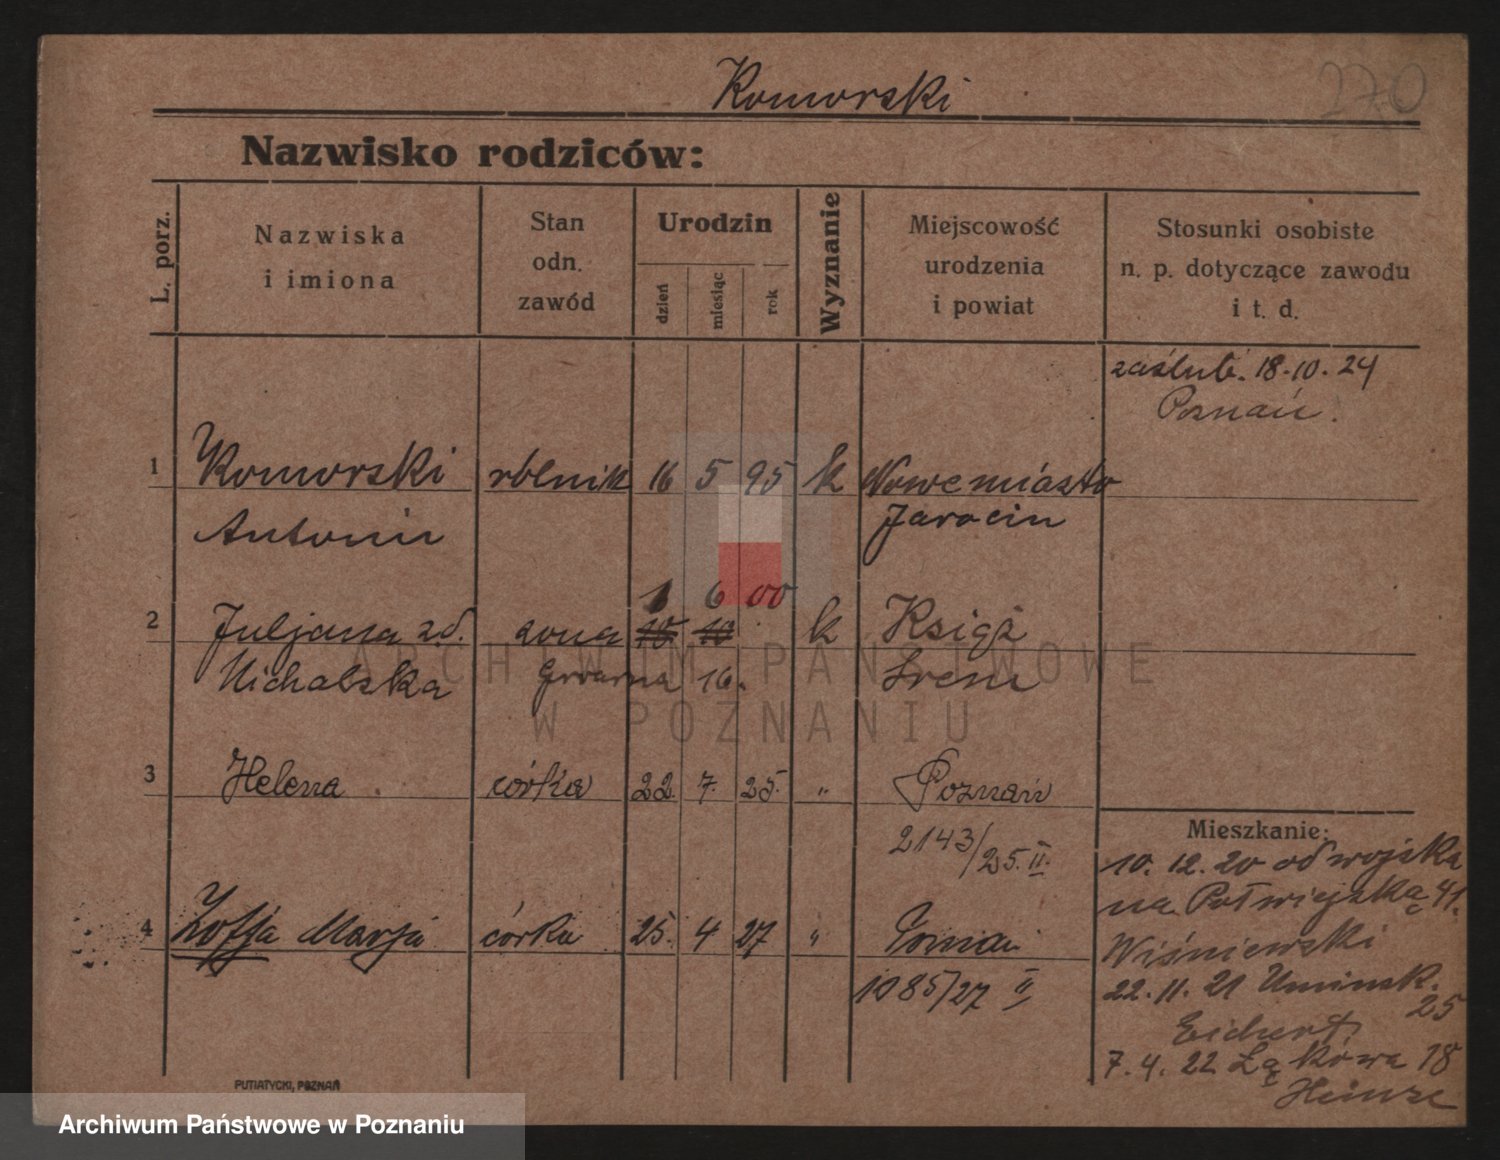 Komorski
270
Nazwisko rodziców:
L. porz.
Nazwiska
i imiona
Stan
odn.
zawód
Urodzin
dzień
miesiąc
rok
Wyznanie
Miejscowość
urodzenia
i powiat
Stosunki osobiste
n. p. dotyczące zawodu
i t. d.
zaślub. 18.10.24
Poznań.
1 Komorski rolnik 16 5 95 k Nowemiasto
Antoni Jarocin
1 6 00
2 Juljana zd. żona 10 10 k Książ
Michalska 16. Śrem
3 Helena córka 22. 7. 25. " Poznań
2143/25.II.
4 Zofja Marja córka 25. 4 27 " Poznań
1085/27 II
Mieszkanie:
10. 12. 20 od wojska
na Półwiejską 41.
Wiśniewski
22. 11. 21 Umińsk.
25
Eichert
7. 4. 22 Łąkowa 18
Heinze
PUTIATYCKI, POZNAŃ
ARCHIWUM PAŃSTWOWE
W POZNANIU
Archiwum Państwowe w Poznaniu